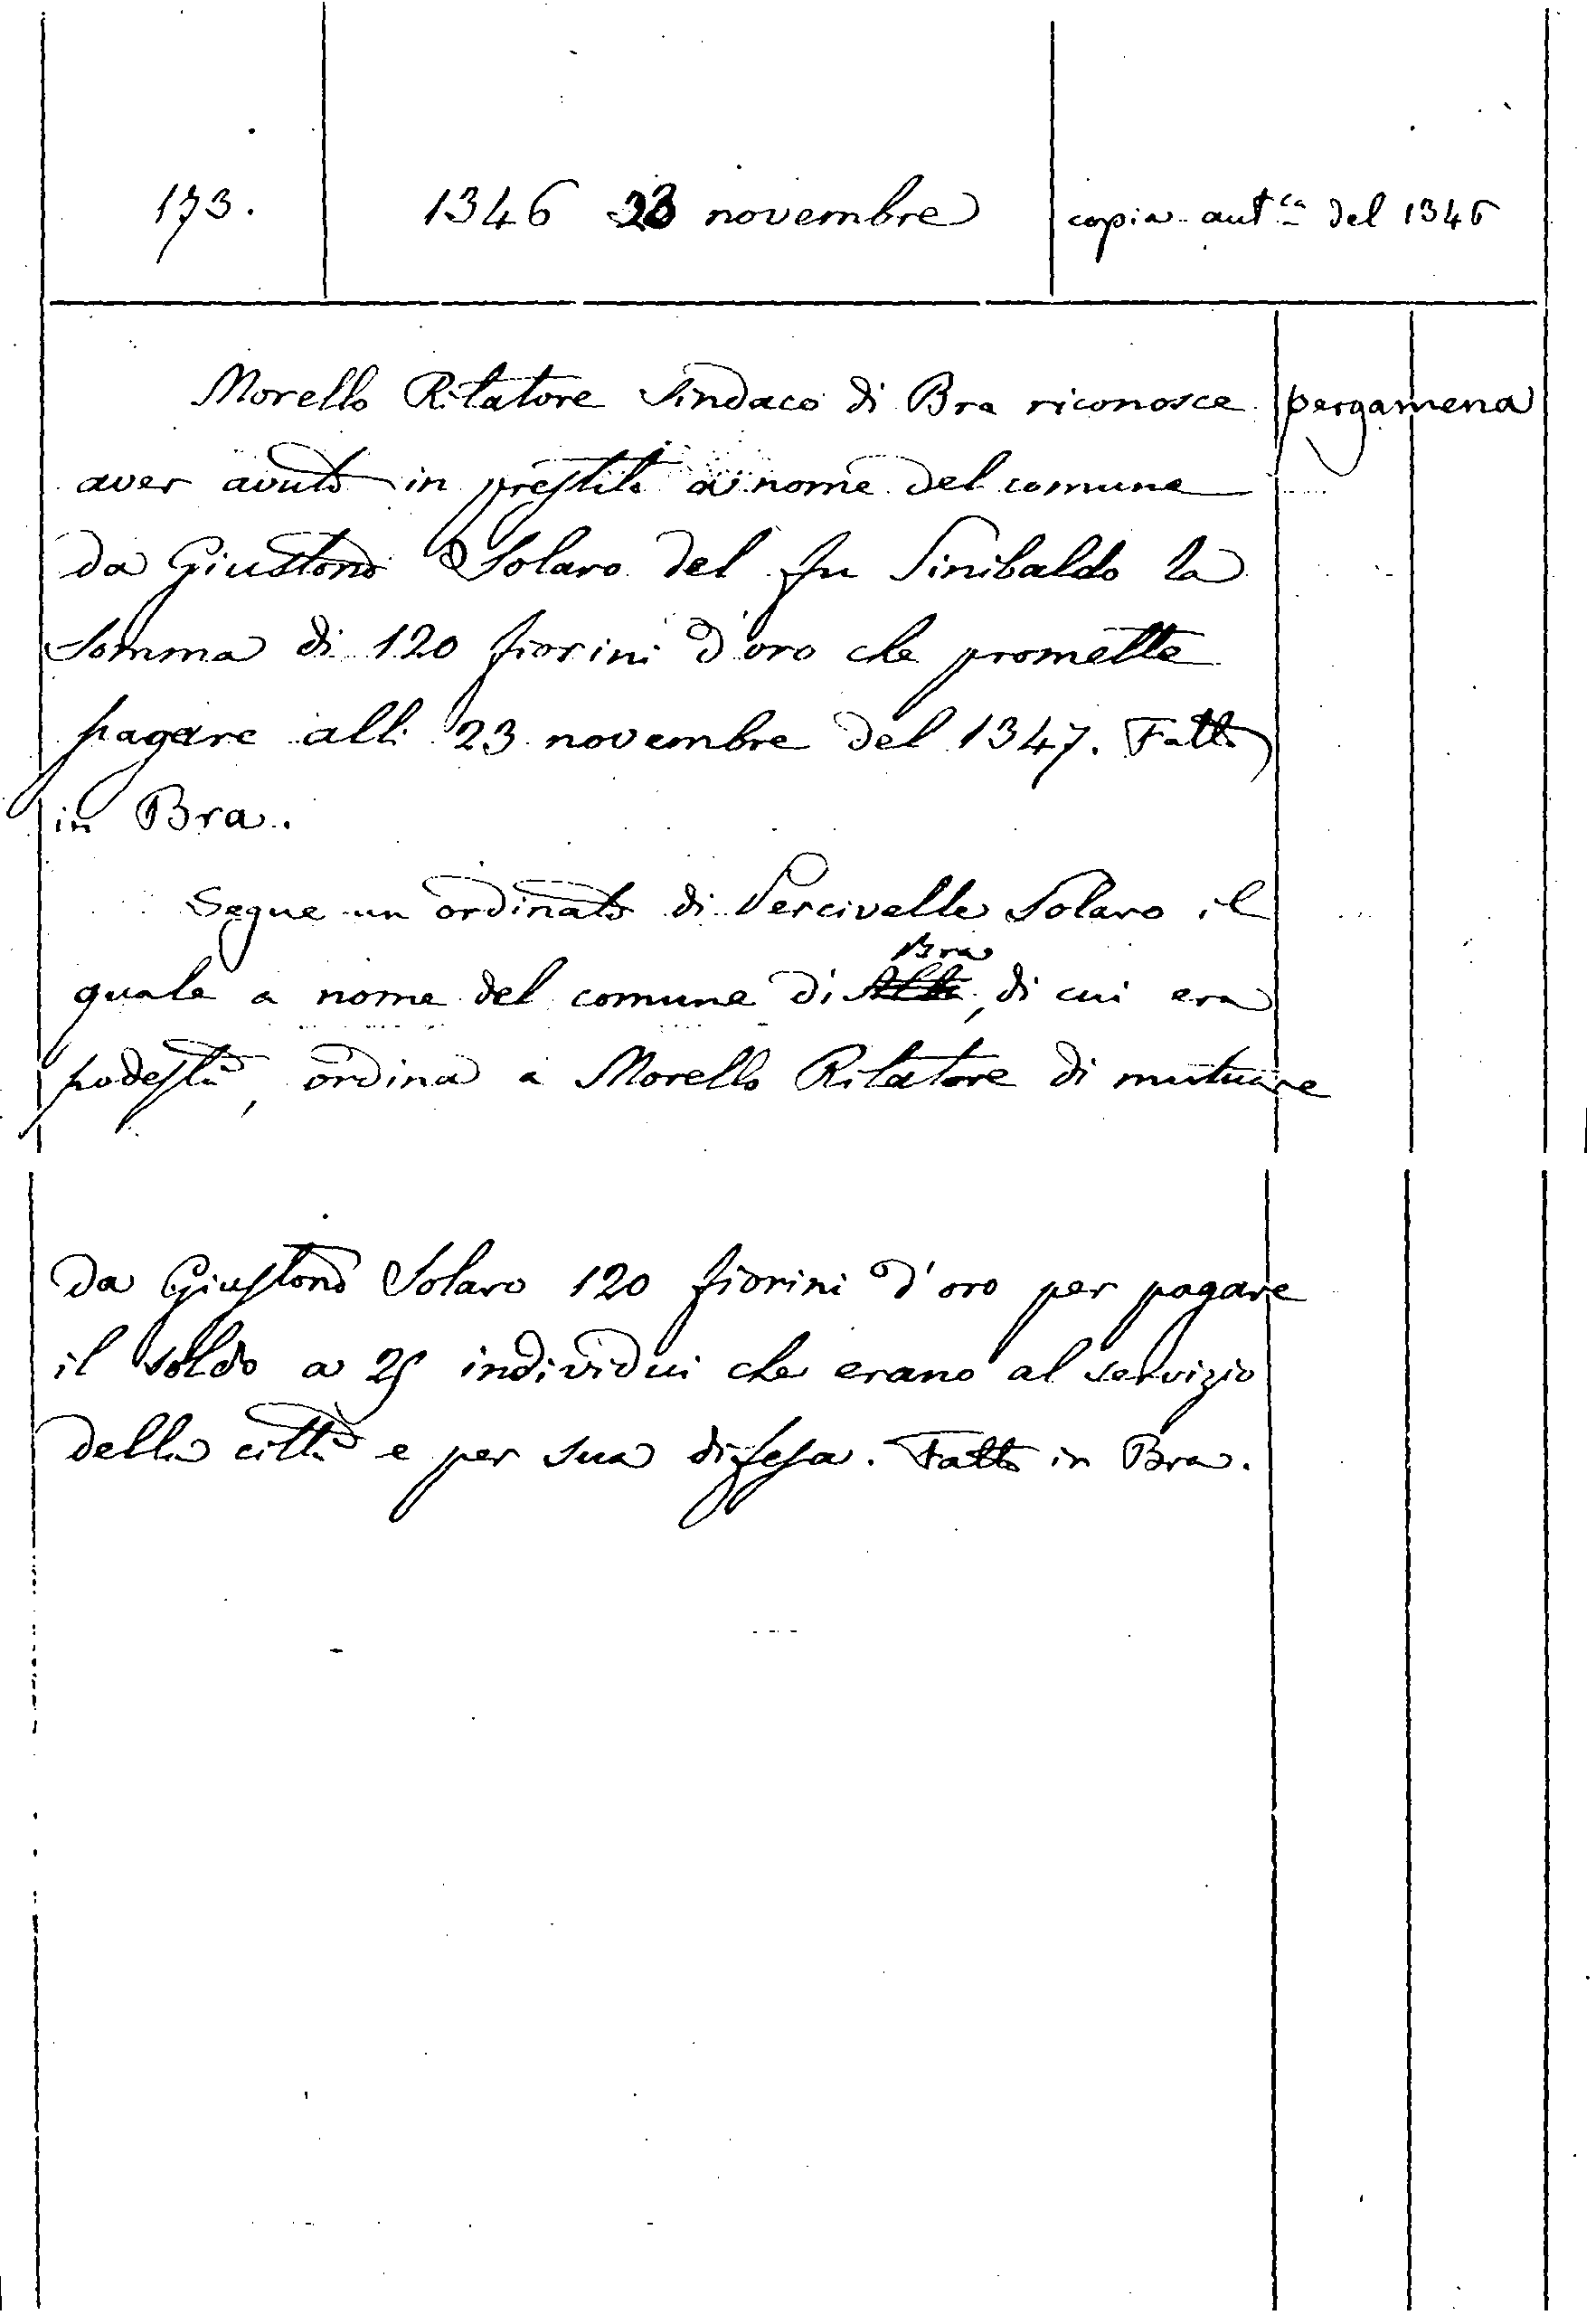 173.
1346 23 novembre
copia aut.ca del 1346
Morello Ritatore Sindaco di Bra riconosce
pergamena
aver avuto in prestito a nome del comune
da Giustono Solaro del fu Sinibaldo la
Somma di 120 fiorini d'oro che promette
pagare alli 23 novembre del 1347. Fatto
in Bra.
Segue un ordinato di Percivalle Solaro il
Bra
quale a nome del comune di Alba, di cui era
podestà, ordina a Morello Ritatore di mutuare
da Giustono Solaro 120 fiorini d'oro per pagare
il soldo a 25 individui che erano al servizio
della città e per sua difesa. Fatto in Bra.